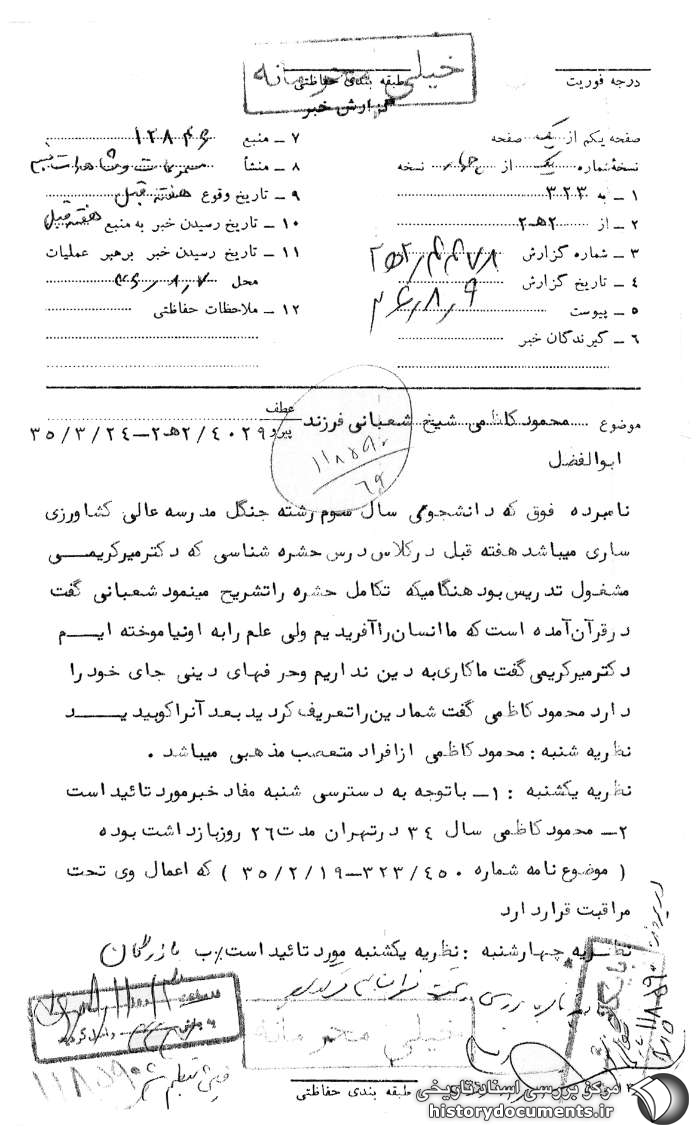 خیلی محرمانه
درجه فوریت
طبقه بندی حفاظتی
گزارش خبر
صفحه یکم از یک صفحه
نسخهٔ شماره یک از نسخه
۱ ـ به ۳۲۳
۲ ـ از ۲هـ۲
۳ ـ شماره گزارش
۴ ـ تاریخ گزارش ۳۶٫۸٫۹
۵ ـ پیوست
۶ ـ گیرندگان خبر
۷ ـ منبع
۸ ـ منشأ
۹ ـ تاریخ وقوع هفته قبل
۱۰ ـ تاریخ رسیدن خبر به منبع هفته قبل
۱۱ ـ تاریخ رسیدن خبر برهبر عملیات
محل
۱۲ ـ ملاحظات حفاظتی
موضوع محمود کاظمی شیخ شعبانی فرزند
ابوالفضل
عطف
پیرو ۲/۴۰۲۹هـ۲ــ۳۵/۳/۲۴
۱۱۸۵۹۰
نامبرده فوق که دانشجوی سال سوم رشته جنگل مدرسه عالی کشاورزی
ساری میباشد هفته قبل در کلاس درس حشره شناسی که دکتر میرکریمی
مشغول تدریس بود هنگامیکه تکامل حشره را تشریح مینمود شعبانی گفت
در قرآن آمده است که ما انسان را آفریدیم ولی علم را به او نیاموخته ایم
دکتر میرکریمی گفت ما کاری به دین نداریم و حرفهای دینی جای خود را
دارد محمود کاظمی گفت شما دین را تعریف کردید بعد آنرا کوبیدید
نظریه شنبه : محمود کاظمی از افراد متعصب مذهبی میباشد .
نظریه یکشنبه : ۱ــ با توجه به دسترسی شنبه مفاد خبر مورد تائید است
۲ــ محمود کاظمی سال ۳۴ در تهران مدت ۲۶ روز بازداشت بوده
( موضوع نامه شماره ۳۲۳/۴۵۰ــ۳۵/۲/۱۹ ) که اعمال وی تحت
مراقبت قرار دارد
نظریه چهارشنبه : نظریه یکشنبه مورد تائید است٪ب بازرگان
بایگانی
خیلی محرمانه
۱۱۸۵۹۰
طبقه بندی حفاظتی
مرکز بررسی اسناد تاریخی
historydocuments.ir